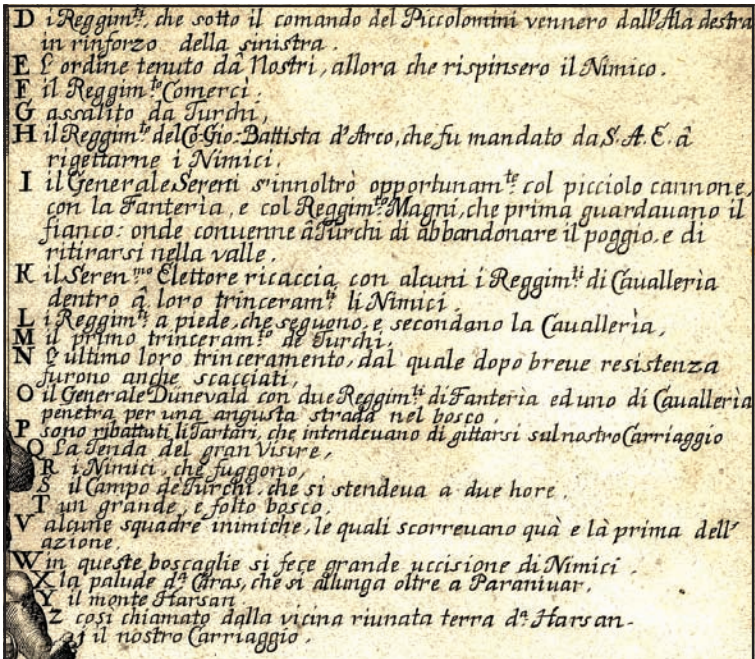 D i Reggim.ti, che sotto il comando del Piccolomini vennero dall'Ala destra
in rinforzo della sinistra.
E L'ordine tenuto dâ Nostri, allora che rispinsero il Nimico.
F il Reggim.to Comerci.
G assalito da Turchi,
H il Reggim.to del Co: Gio: Battista d'Arco, che fu mandato da S. A. E. â
rigettarne i Nimici.
I il Generale Sereni s'innoltrò opportunam.te col picciolo cannone,
con la Fanterìa, e col Reggim.to Magni, che prima guardauano il
fianco: onde conuenne â Turchi di abbandonare il poggio, e di
ritirarsi nella valle.
K il Seren.mo Elettore ricaccia con alcuni i Reggim.ti di Cauallerìa
dentro â loro trinceram.ti li Nimici.
L i Reggim.ti a piede, che seguono, e secondano la Cauallerìa,
M il primo trinceram.to de Turchi.
N L'ultimo loro trinceramento, dal quale dopo breue resistenza
furono anche scacciati,
O il Generale Dünevald con due Reggim.ti di Fanterìa ed uno di Cauallerìa
penetra per una angusta strada nel bosco.
P sono ribattuti li Tartari, che intendeuano di gittarsi sul nostro Carriaggio
Q La Tenda del gran Visire,
R i Nimici, che fuggono,
S il Campo de Turchi, che si stendeua a due hore.
T un grande, e folto bosco.
V alcune squadre inimiche, le quali scorreuano quà e là prima dell'
azione.
W in queste boscaglie si fece grande uccisione di Nimici.
X la palude d.a Caras, che si allunga oltre a Paraniuar,
Y il monte Harsan
Z così chiamato dalla vicina riunata terra d.a Harsan-
il nostro Carriaggio.